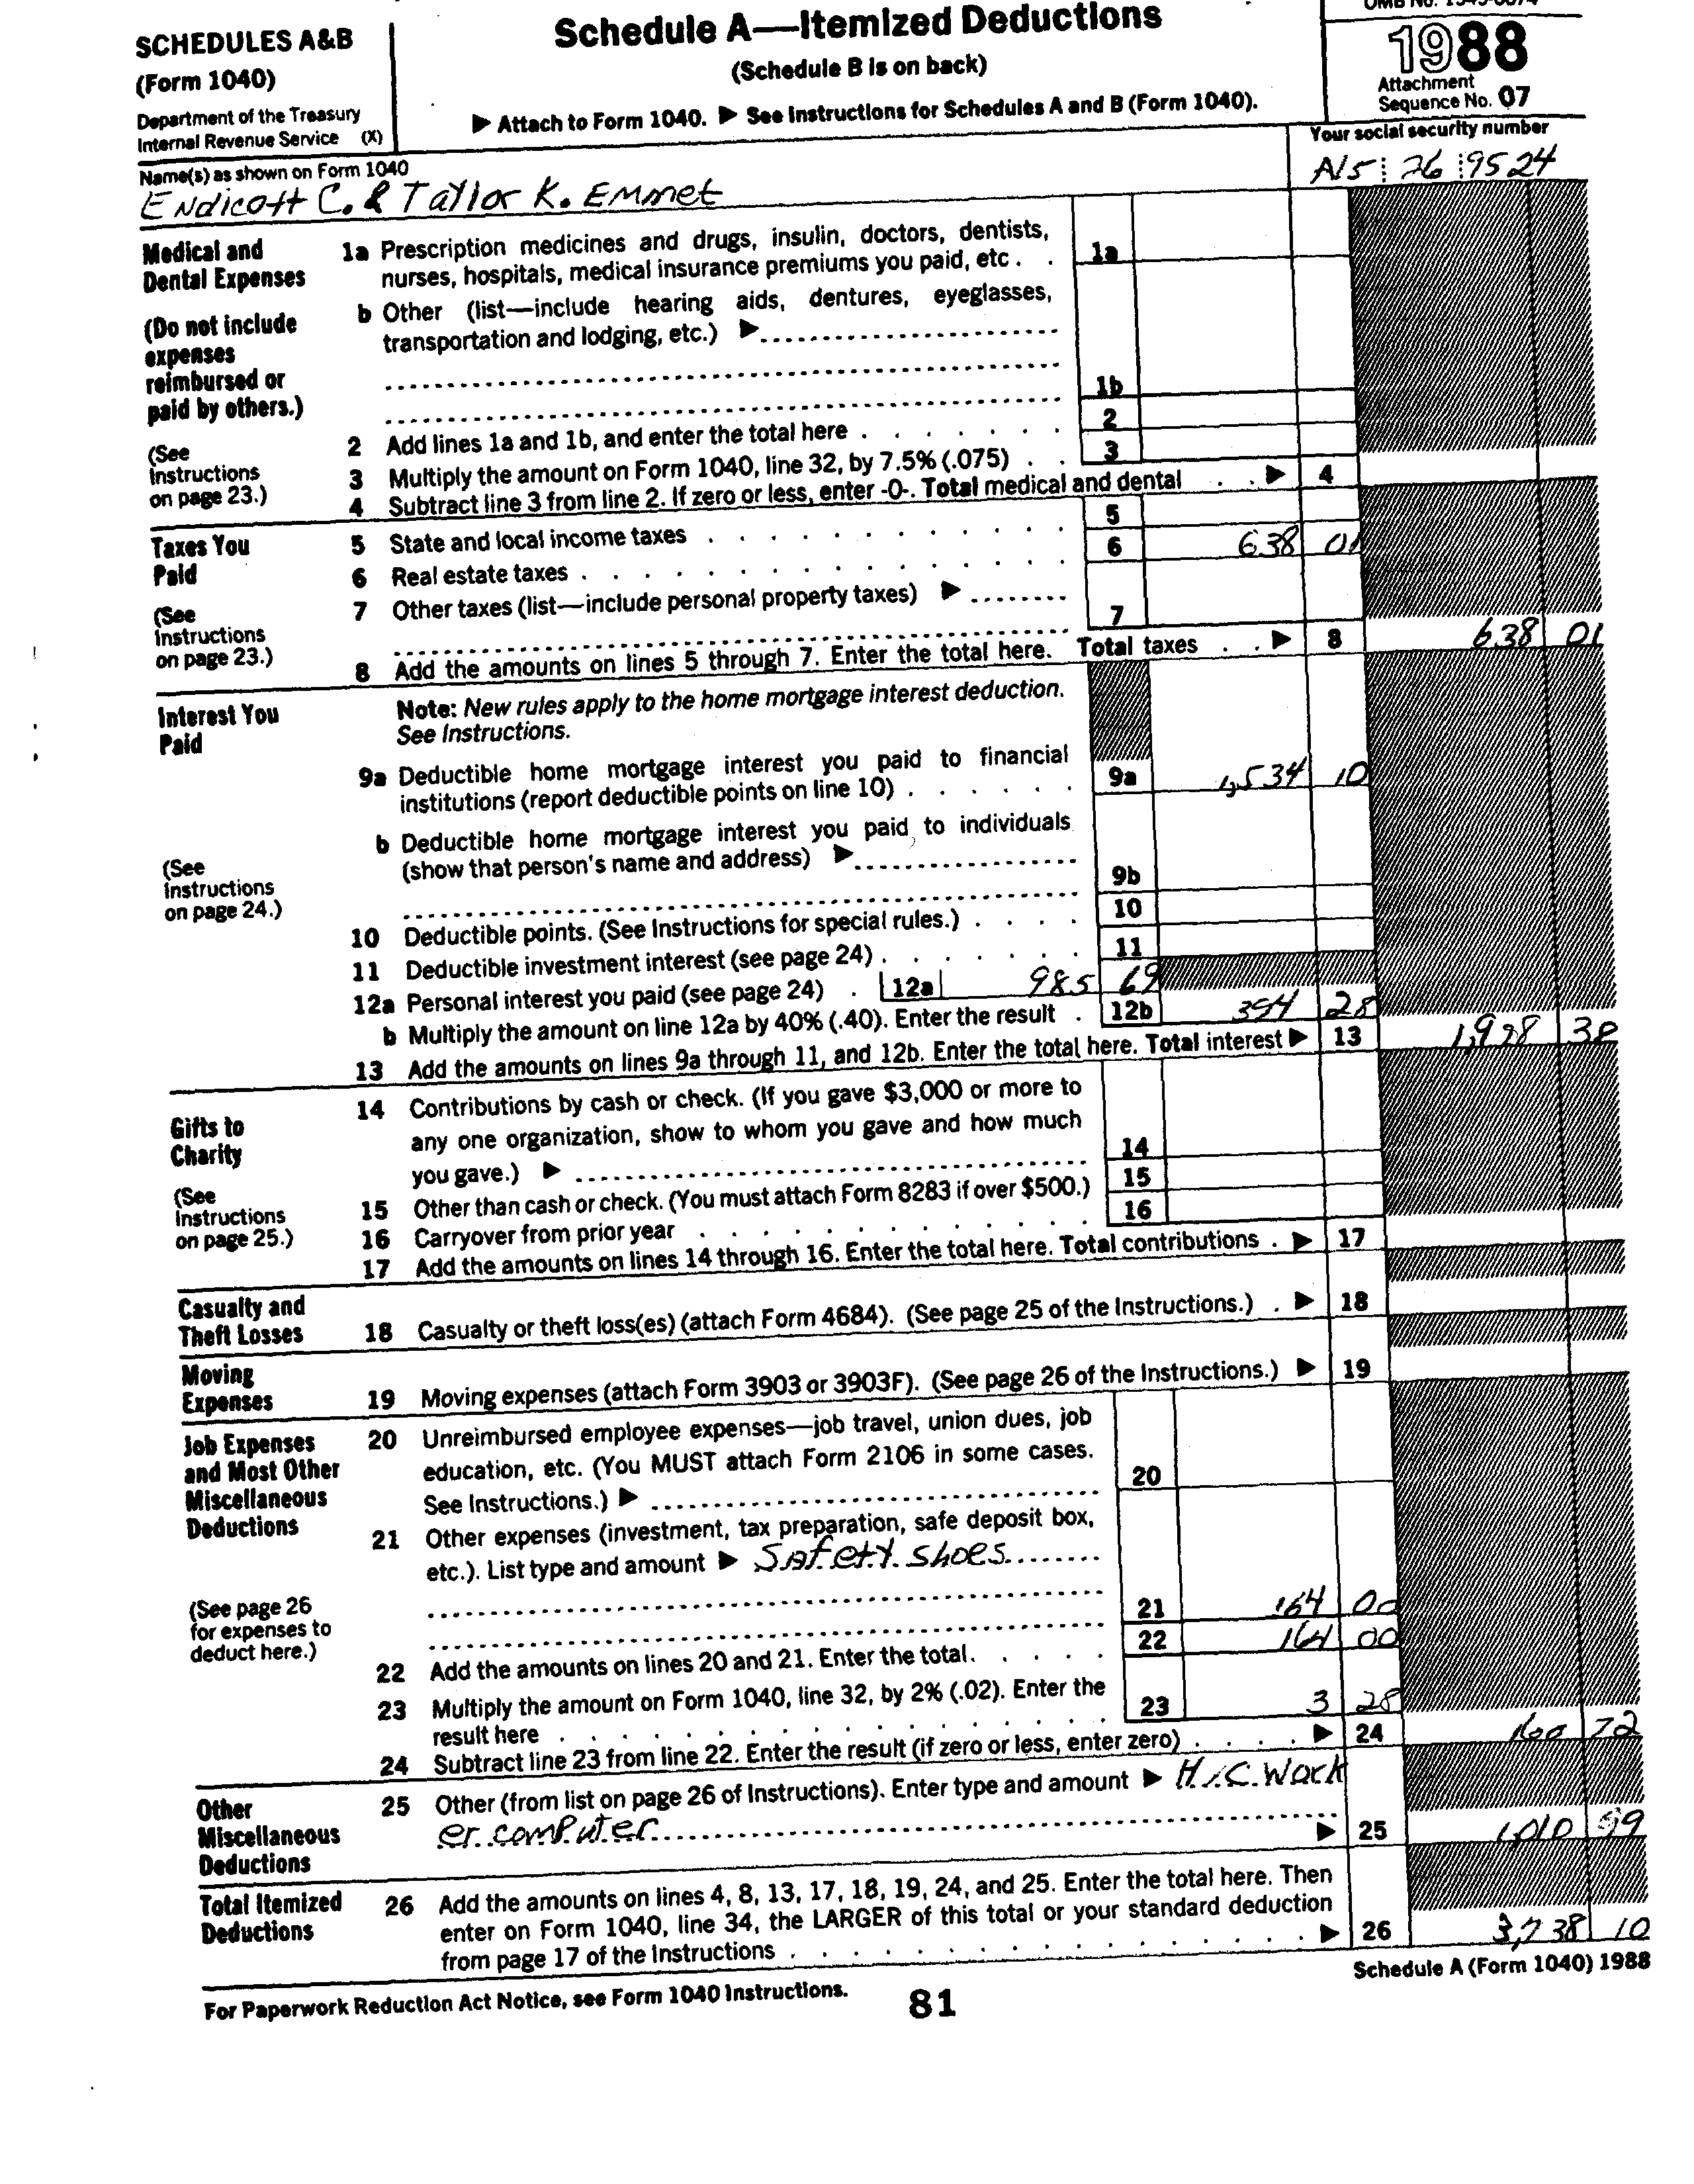 SCHEDULES A&B
(Form 1040)
Department of the Treasury
Internal Revenue Service (X)
Schedule A—Itemized Deductions
(Schedule B is on back)
▶ Attach to Form 1040. ▶ See Instructions for Schedules A and B (Form 1040).
1988
Attachment
Sequence No. 07
Name(s) as shown on Form 1040
Endicott C. & Taylor K. Emmet
Your social security number
A15 26 9524
Medical and
Dental Expenses
(Do not include
expenses
reimbursed or
paid by others.)
(See
Instructions
on page 23.)
1a Prescription medicines and drugs, insulin, doctors, dentists,
nurses, hospitals, medical insurance premiums you paid, etc . . 1a
b Other (list—include hearing aids, dentures, eyeglasses,
transportation and lodging, etc.) ▶
1b
2 Add lines 1a and 1b, and enter the total here 2
3 Multiply the amount on Form 1040, line 32, by 7.5% (.075) 3
4 Subtract line 3 from line 2. If zero or less, enter -0-. Total medical and dental ▶ 4
Taxes You
Paid
(See
Instructions
on page 23.)
5 State and local income taxes 5
6 Real estate taxes 6 638 01
7 Other taxes (list—include personal property taxes) ▶
7
8 Add the amounts on lines 5 through 7. Enter the total here. Total taxes ▶ 8 638 01
Interest You
Paid
(See
Instructions
on page 24.)
Note: New rules apply to the home mortgage interest deduction.
See Instructions.
9a Deductible home mortgage interest you paid to financial
institutions (report deductible points on line 10) 9a 1,534 10
b Deductible home mortgage interest you paid to individuals
(show that person's name and address) ▶
9b
10 Deductible points. (See Instructions for special rules.) 10
11 Deductible investment interest (see page 24) 11
12a Personal interest you paid (see page 24) 12a 985 69
b Multiply the amount on line 12a by 40% (.40). Enter the result 12b 394 28
13 Add the amounts on lines 9a through 11, and 12b. Enter the total here. Total interest ▶ 13 1,928 38
Gifts to
Charity
(See
Instructions
on page 25.)
14 Contributions by cash or check. (If you gave $3,000 or more to
any one organization, show to whom you gave and how much
you gave.) ▶ 14
15 Other than cash or check. (You must attach Form 8283 if over $500.) 15
16 Carryover from prior year 16
17 Add the amounts on lines 14 through 16. Enter the total here. Total contributions . ▶ 17
Casualty and
Theft Losses
18 Casualty or theft loss(es) (attach Form 4684). (See page 25 of the Instructions.) . ▶ 18
Moving
Expenses
19 Moving expenses (attach Form 3903 or 3903F). (See page 26 of the Instructions.) ▶ 19
Job Expenses
and Most Other
Miscellaneous
Deductions
(See page 26
for expenses to
deduct here.)
20 Unreimbursed employee expenses—job travel, union dues, job
education, etc. (You MUST attach Form 2106 in some cases.
See Instructions.) ▶ 20
21 Other expenses (investment, tax preparation, safe deposit box,
etc.). List type and amount ▶ Safety shoes
21 164 00
22 Add the amounts on lines 20 and 21. Enter the total. 22 164 00
23 Multiply the amount on Form 1040, line 32, by 2% (.02). Enter the
result here 23 3 28
24 Subtract line 23 from line 22. Enter the result (if zero or less, enter zero) ▶ 24 160 72
Other
Miscellaneous
Deductions
25 Other (from list on page 26 of Instructions). Enter type and amount ▶ H.I.C. Work
er computer ▶ 25 1,010 99
Total Itemized
Deductions
26 Add the amounts on lines 4, 8, 13, 17, 18, 19, 24, and 25. Enter the total here. Then
enter on Form 1040, line 34, the LARGER of this total or your standard deduction
from page 17 of the Instructions ▶ 26 3,738 10
For Paperwork Reduction Act Notice, see Form 1040 Instructions.
81
Schedule A (Form 1040) 1988